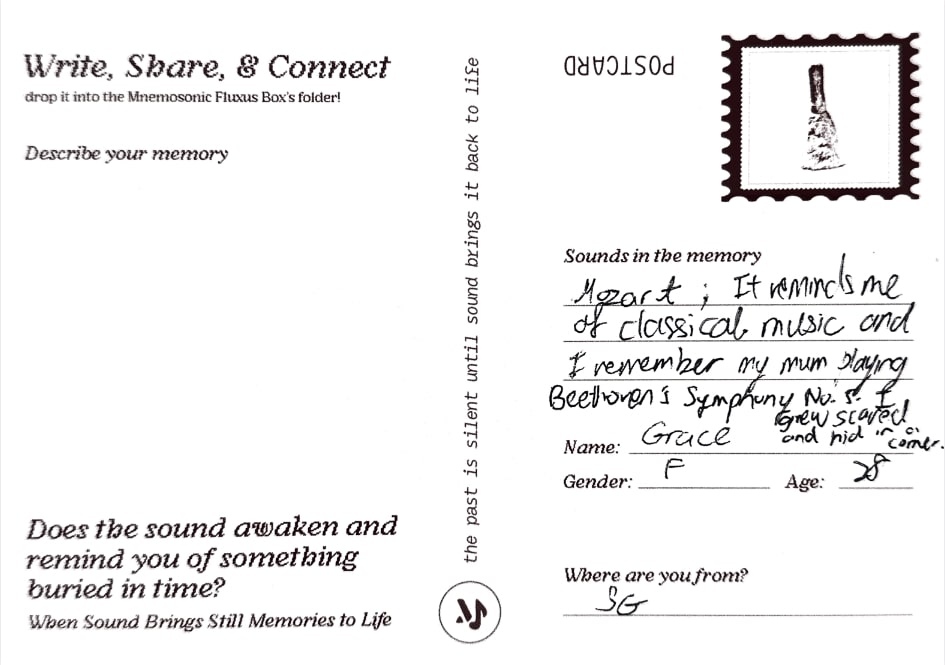 Write, Share, & Connect
drop it into the Mnemosonic Fluxus Box's folder!
Describe your memory
Does the sound awaken and
remind you of something
buried in time?
When Sound Brings Still Memories to Life
the past is silent until sound brings it back to life
POSTCARD
Sounds in the memory
Mozart ; It reminds me
of classical music and
I remember my mum playing
Beethoven's Symphony No. 5. I
grew scared
and hid in a
corner.
Name: Grace
Gender: F Age: 28
Where are you from?
SG